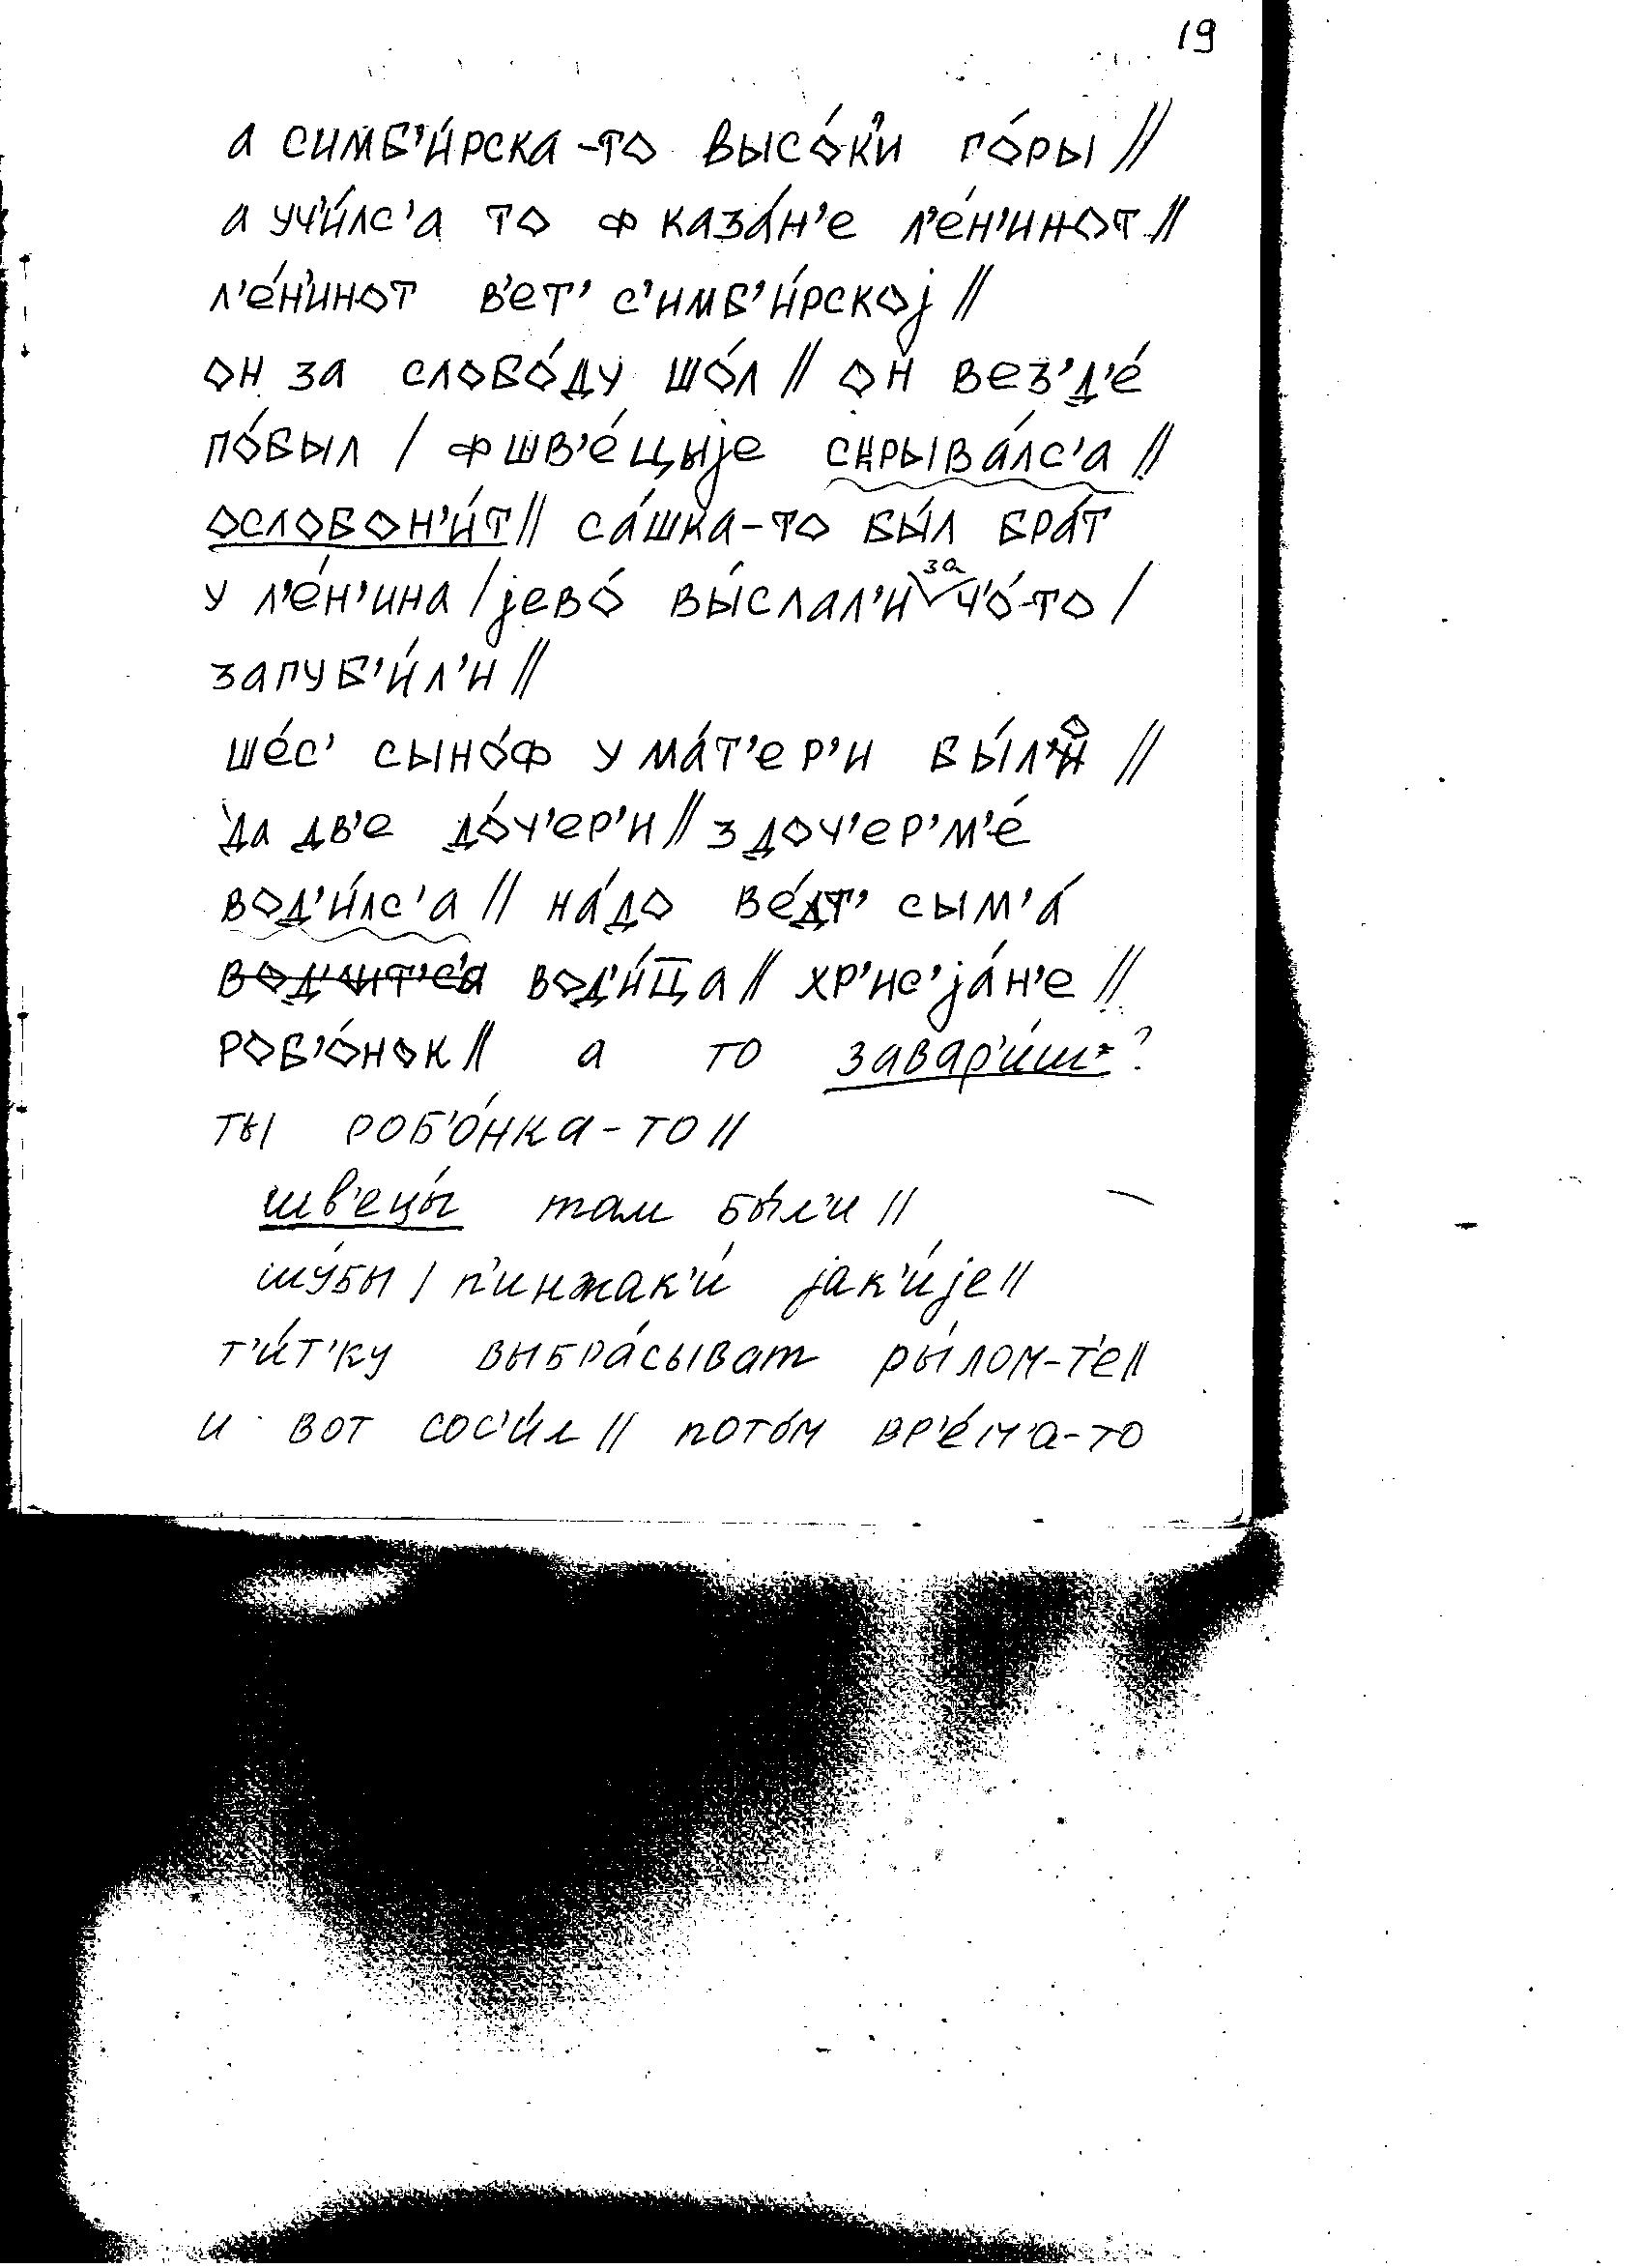 19
а симб'и́рска-то высо́к'и го́ры //
а уч'и́лс'а то ф каза́н'е л'е́н'инот //
л'е́н'инот в'ет' с'имб'и́рској //
он за слобо́ду шо́л // он вез'д'е́
по́был / ф шв'е́цыје скрыва́лс'а //
ослобон'и́т // са́шка-то бы́л бра́т
у л'е́н'ина / јево́ вы́слал'и за ч'о́-то /
загуб'и́л'и //
ше́с' сыно́ф у ма́т'ер'и бы́ло //
да дв'е до́ч'ер'и // з доч'ер'м'е́
вод'и́лс'а // на́до ве́т' сым'а́
вод'ит'с'а вод'и́ц̅а // хр'ис'ја́н'е //
роб'о́нок // а то завар'и́ш ?
ты роб'о́нка-то //
шв'ецы́ там бы́л'и //
шу́бы / п'инжак'и́ јак'и́је //
т'и́т'ку выбра́сыват ры́лом-т'е //
и вот сос'и́л // пото́м вр'е́м'а-то